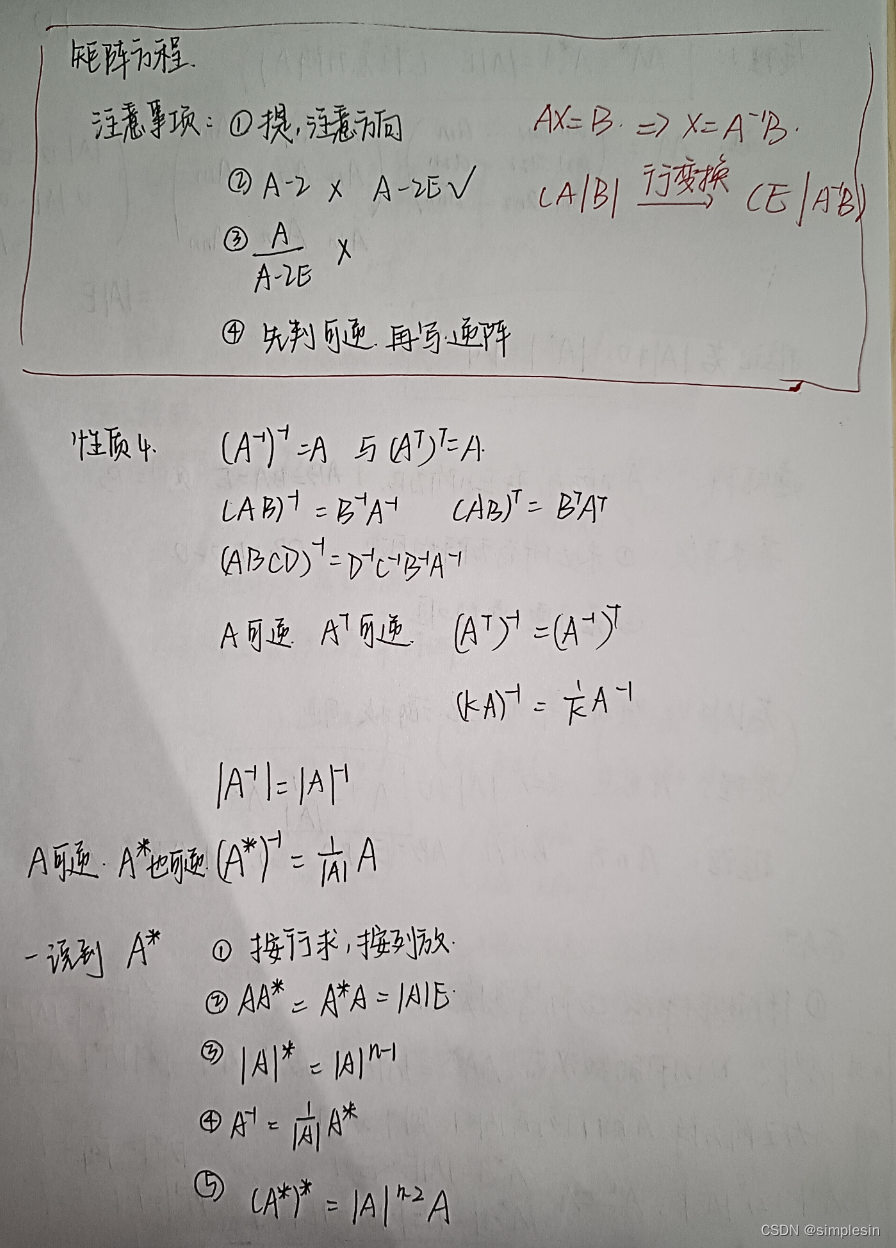 矩阵方程.
注意事项: ① 提, 注意方向 AX=B. => X=A⁻¹B.
② A-2 × A-2E√ (A|B| 行变换→ (E|A⁻¹B)
③ A/(A-2E) ×
④ 先判可逆.再写逆阵
性质4. (A⁻¹)⁻¹=A 与 (Aᵀ)ᵀ=A.
(AB)⁻¹ = B⁻¹A⁻¹ (AB)ᵀ = BᵀAᵀ
(ABCD)⁻¹=D⁻¹C⁻¹B⁻¹A⁻¹
A可逆. Aᵀ可逆. (Aᵀ)⁻¹=(A⁻¹)ᵀ
(kA)⁻¹ = 1/k A⁻¹
|A⁻¹|=|A|⁻¹
A可逆. A*也可逆.(A*)⁻¹ = 1/|A| A
一说到 A* ① 按行求,按列放.
② AA* = A*A = |A|E.
③ |A|* = |A|ⁿ⁻¹
④ A⁻¹ = 1/|A| A*
⑤ (A*)* = |A|ⁿ⁻² A
CSDN @simplesin